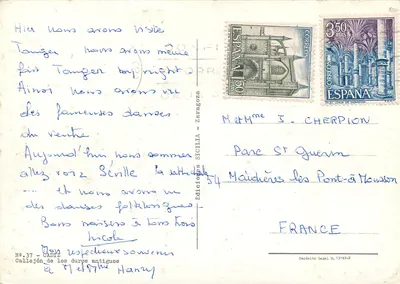 Hier nous avons visité
Tanger, nous avons même
fait Tanger by night
Ainsi nous avons vu
des fameuses danses
du ventre.
Aujourd'hui nous sommes
allés voir Séville la cathédrale
... et nous avons vu
des danses folkloriques
Bons baisers à tous trois
Nicole
Mon respectueux souvenir
à M et Mme Henry
Nº. 37 - CADIZ
Callejón de los duros antiguos
Ediciones SICILIA - Zaragoza
ESPAÑA
1,50
CORREOS
3,50 PTAS
CORREOS
ESPAÑA
M et Mme J. CHERPION
Parc St Guerin
54 Maidières lès Pont-à-Mousson
FRANCE